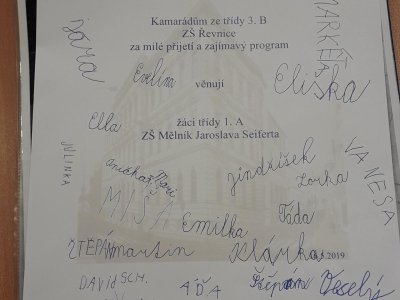 Kamarádům ze třídy 3. B
ZŠ Řevnice
za milé přijetí a zajímavý program
věnují
žáci třídy 1. A
ZŠ Mělník Jaroslava Seiferta
MARKÉTA
Jára
Evelína
Eliška
Ella
JULINKA
Jindříšek
VANESA
Lorka
MIŠA
Emilka
Táda
ŠTĚPÁN
martin
Klárka
.2019
DAVID SCH.
ÁĎA
Štěpán Veselý